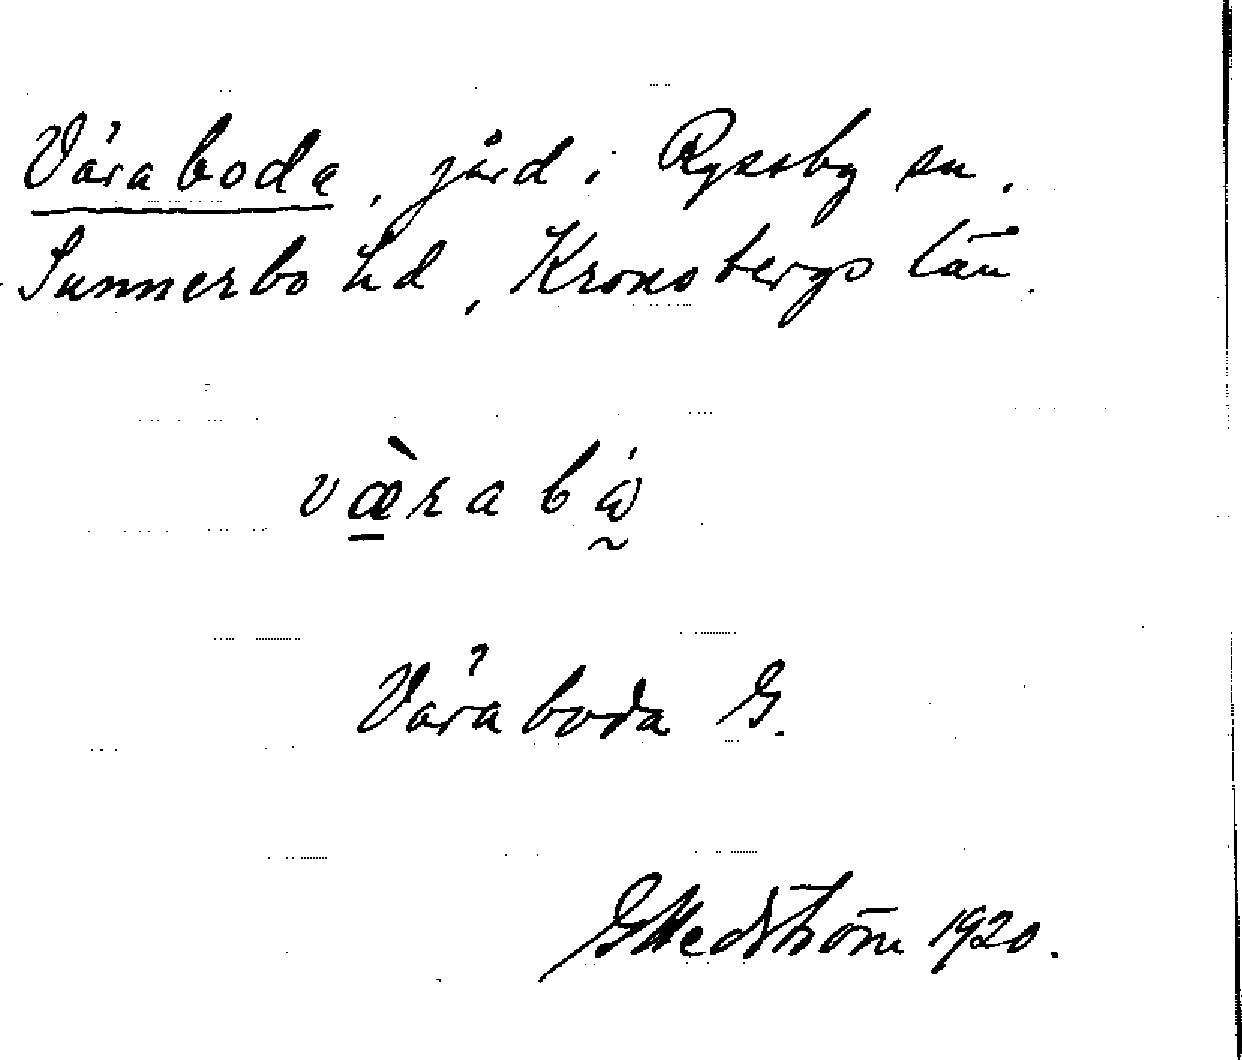 Våraboda, jård i Ryssby sn.
Sunnerbo hd, Kronobergs län.
væ̀rabå
Våraboda G.
G Hedström 1920.